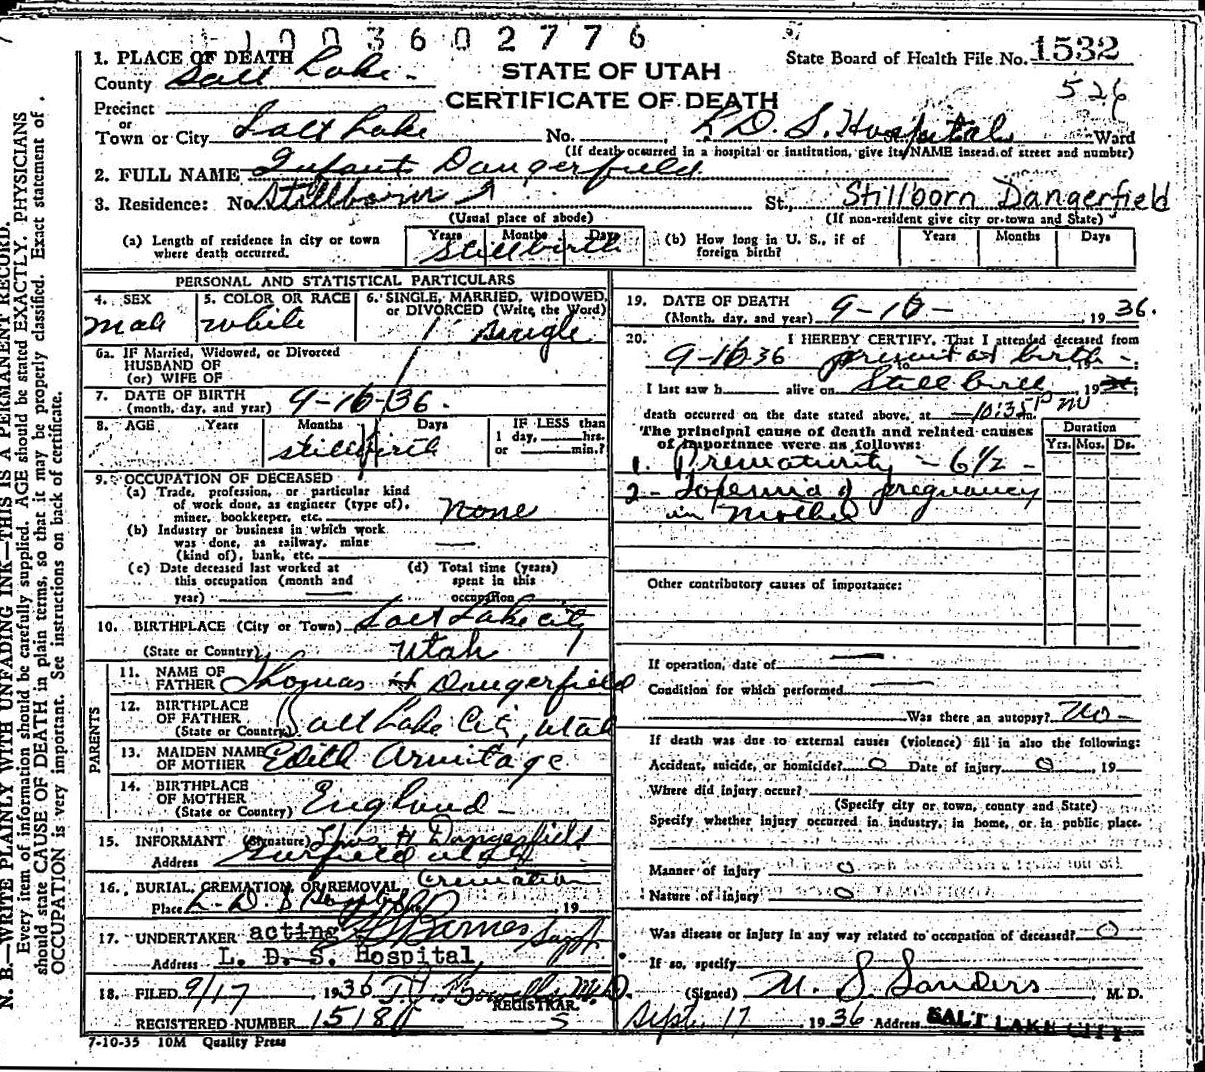 1003602776
1. PLACE OF DEATH
State Board of Health File No. 1532
County Salt Lake
STATE OF UTAH
526
Precinct
CERTIFICATE OF DEATH
or
Town or City Salt Lake No. L. D. S. Hospital Ward
(If death occurred in a hospital or institution, give its NAME insead of street and number)
2. FULL NAME Infant Dangerfield
3. Residence: No. Stillborn St., Stillborn Dangerfield
(Usual place of abode) (If non-resident give city or town and State)
(a) Length of residence in city or town where death occurred. Years Months Days Stillbirth
(b) How long in U. S., if of foreign birth? Years Months Days
PERSONAL AND STATISTICAL PARTICULARS
4. SEX Male
5. COLOR OR RACE white
6. SINGLE, MARRIED, WIDOWED, or DIVORCED (Write the Word) Single
6a. IF Married, Widowed, or Divorced
HUSBAND OF
(or) WIFE OF
7. DATE OF BIRTH
(month, day, and year) 9-16-36.
8. AGE Years Months Days IF LESS than
stillbirth 1 day, hrs.
or min.?
9. OCCUPATION OF DECEASED
(a) Trade, profession, or particular kind
of work done, as engineer (type of),
miner, bookkeeper, etc. None
(b) Industry or business in which work
was done, as railway, mine
(kind of), bank, etc. —
(c) Date deceased last worked at
this occupation (month and
year) —
(d) Total time (years)
spent in this
occupation
10. BIRTHPLACE (City or Town) Salt Lake City
(State or Country) Utah
PARENTS
11. NAME OF
FATHER Thomas H Dangerfield
12. BIRTHPLACE
OF FATHER
(State or Country) Salt Lake City, Utah
13. MAIDEN NAME
OF MOTHER Edith Armitage
14. BIRTHPLACE
OF MOTHER
(State or Country) England
15. INFORMANT (Signature) Thos H Dangerfield
Address Garfield Utah
16. BURIAL, CREMATION OR REMOVAL Cremation
Place L. D. S. Hospital 19
17. UNDERTAKER acting Barnes Supt.
Address L. D. S. Hospital
18. FILED 9/17 1936 M.D.
REGISTRAR.
REGISTERED NUMBER 1518
7-10-35 10M Quality Press
19. DATE OF DEATH
(Month, day, and year) 9-16- , 1936.
20. I HEREBY CERTIFY, That I attended deceased from
9-16 36 to present at birth
I last saw h alive on Stillbirth 19
death occurred on the date stated above, at 10:35 P m
The principal cause of death and related causes
of importance were as follows:
Duration
Yrs. Mos. Ds.
1. Prematurity - 6½ -
2 - Toxemia of pregnancy
in Mother
Other contributory causes of importance:
If operation, date of —
Condition for which performed —
Was there an autopsy? No -
If death was due to external causes (violence) fill in also the following:
Accident, suicide, or homicide? 0 Date of injury 0 19
Where did injury occur?
(Specify city or town, county and State)
Specify whether injury occurred in industry, in home, or in public place.
Manner of injury 0
Nature of injury 0
Was disease or injury in any way related to occupation of deceased? 0
If so, specify
(Signed) M. S. Sanders, M. D.
Sept. 17 1936 Address SALT LAKE CITY
N. B.—WRITE PLAINLY WITH UNFADING INK—THIS IS A PERMANENT RECORD.
Every item of information should be carefully supplied. AGE should be stated EXACTLY. PHYSICIANS
should state CAUSE OF DEATH in plain terms, so that it may be properly classified. Exact statement of
OCCUPATION is very important. See instructions on back of certificate.